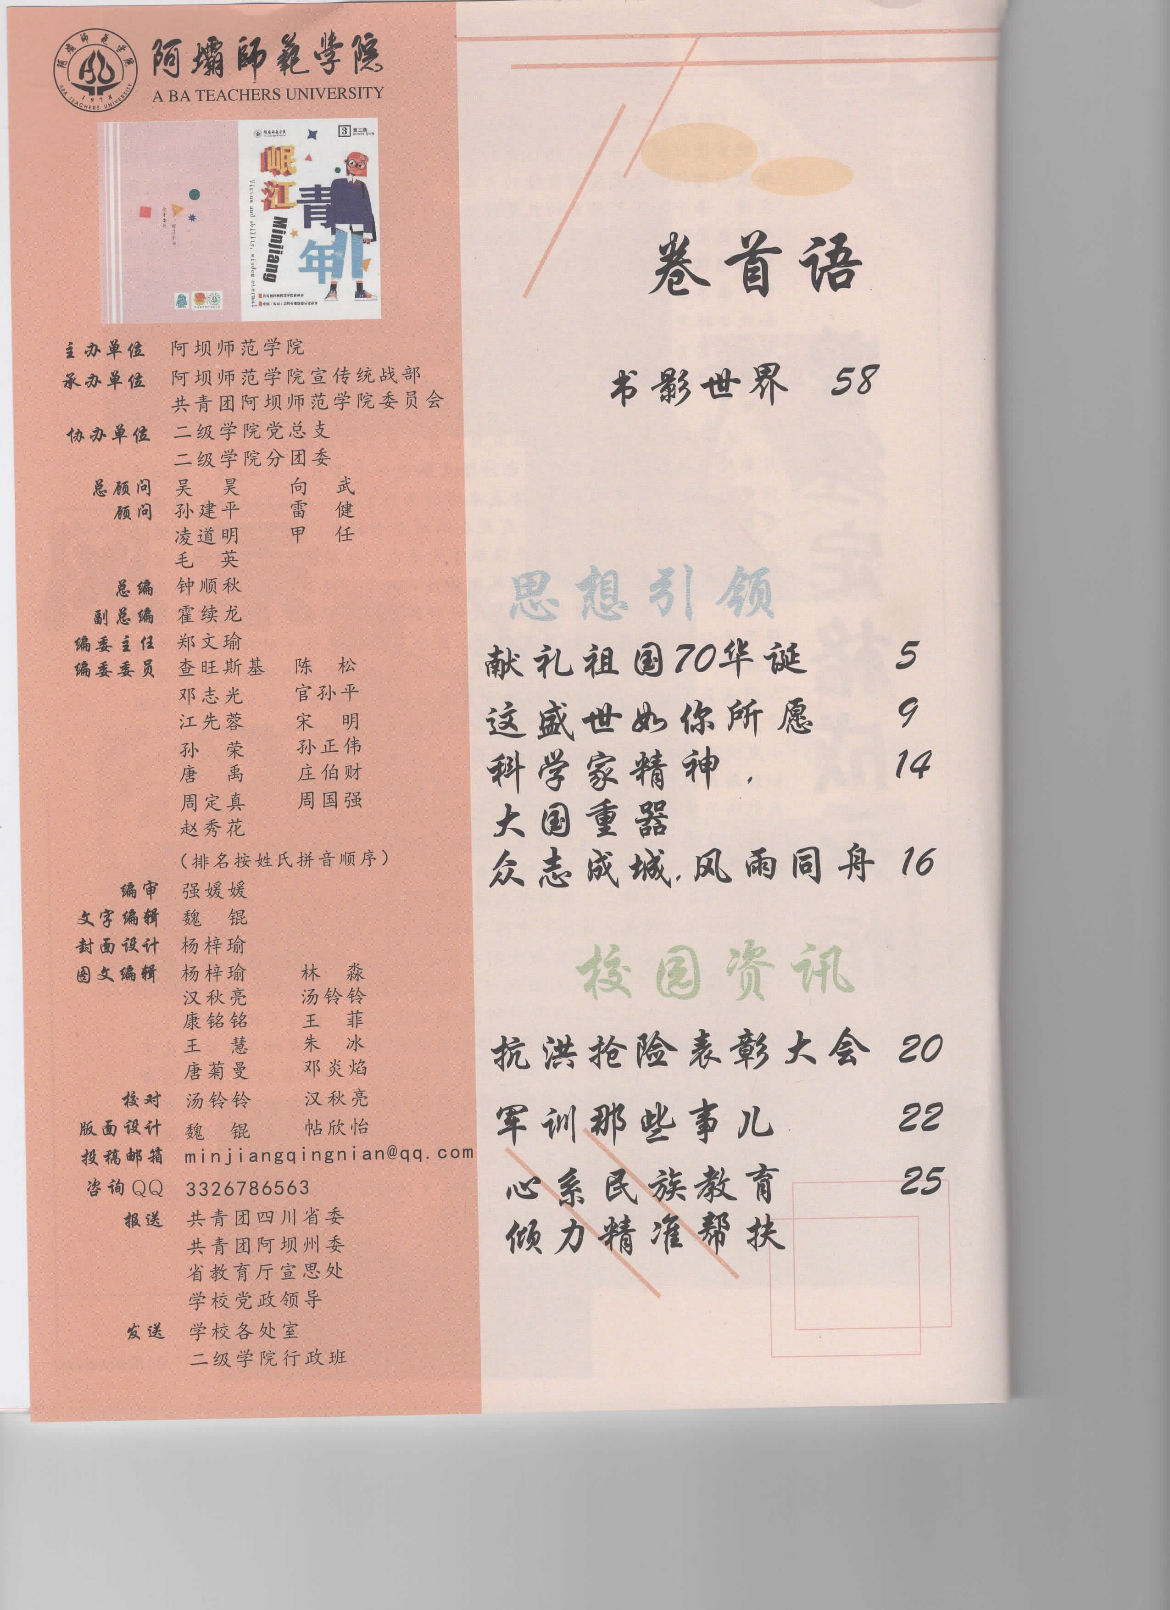 阿壩師範學院
A BA TEACHERS UNIVERSITY
岷江
青年
Minjiang
主办单位 阿坝师范学院
承办单位 阿坝师范学院宣传统战部
共青团阿坝师范学院委员会
协办单位 二级学院党总支
二级学院分团委
总顾问 吴 昊 向 武
顾问 孙建平 雷 健
凌道明 甲 任
毛 英
总编 钟顺秋
副总编 霍续龙
编委主任 郑文瑜
编委委员 查旺斯基 陈 松
邓志光 官孙平
江先蓉 宋 明
孙 荣 孙正伟
唐 禹 庄伯财
周定真 周国强
赵秀花
(排名按姓氏拼音顺序)
编审 强媛媛
文字编辑 魏 锟
封面设计 杨梓瑜
图文编辑 杨梓瑜 林 淼
汉秋亮 汤铃铃
康铭铭 王 菲
王 慧 朱 冰
唐菊曼 邓炎焰
校对 汤铃铃 汉秋亮
版面设计 魏 锟 帖欣怡
投稿邮箱 minjiangqingnian@qq.com
咨询QQ 3326786563
报送 共青团四川省委
共青团阿坝州委
省教育厅宣思处
学校党政领导
发送 学校各处室
二级学院行政班
卷首语
书影世界 58
思想引领
献礼祖国70华诞 5
这盛世如你所愿 9
科学家精神， 14
大国重器
众志成城，风雨同舟 16
校园资讯
抗洪抢险表彰大会 20
军训那些事儿 22
心系民族教育 25
倾力精准帮扶